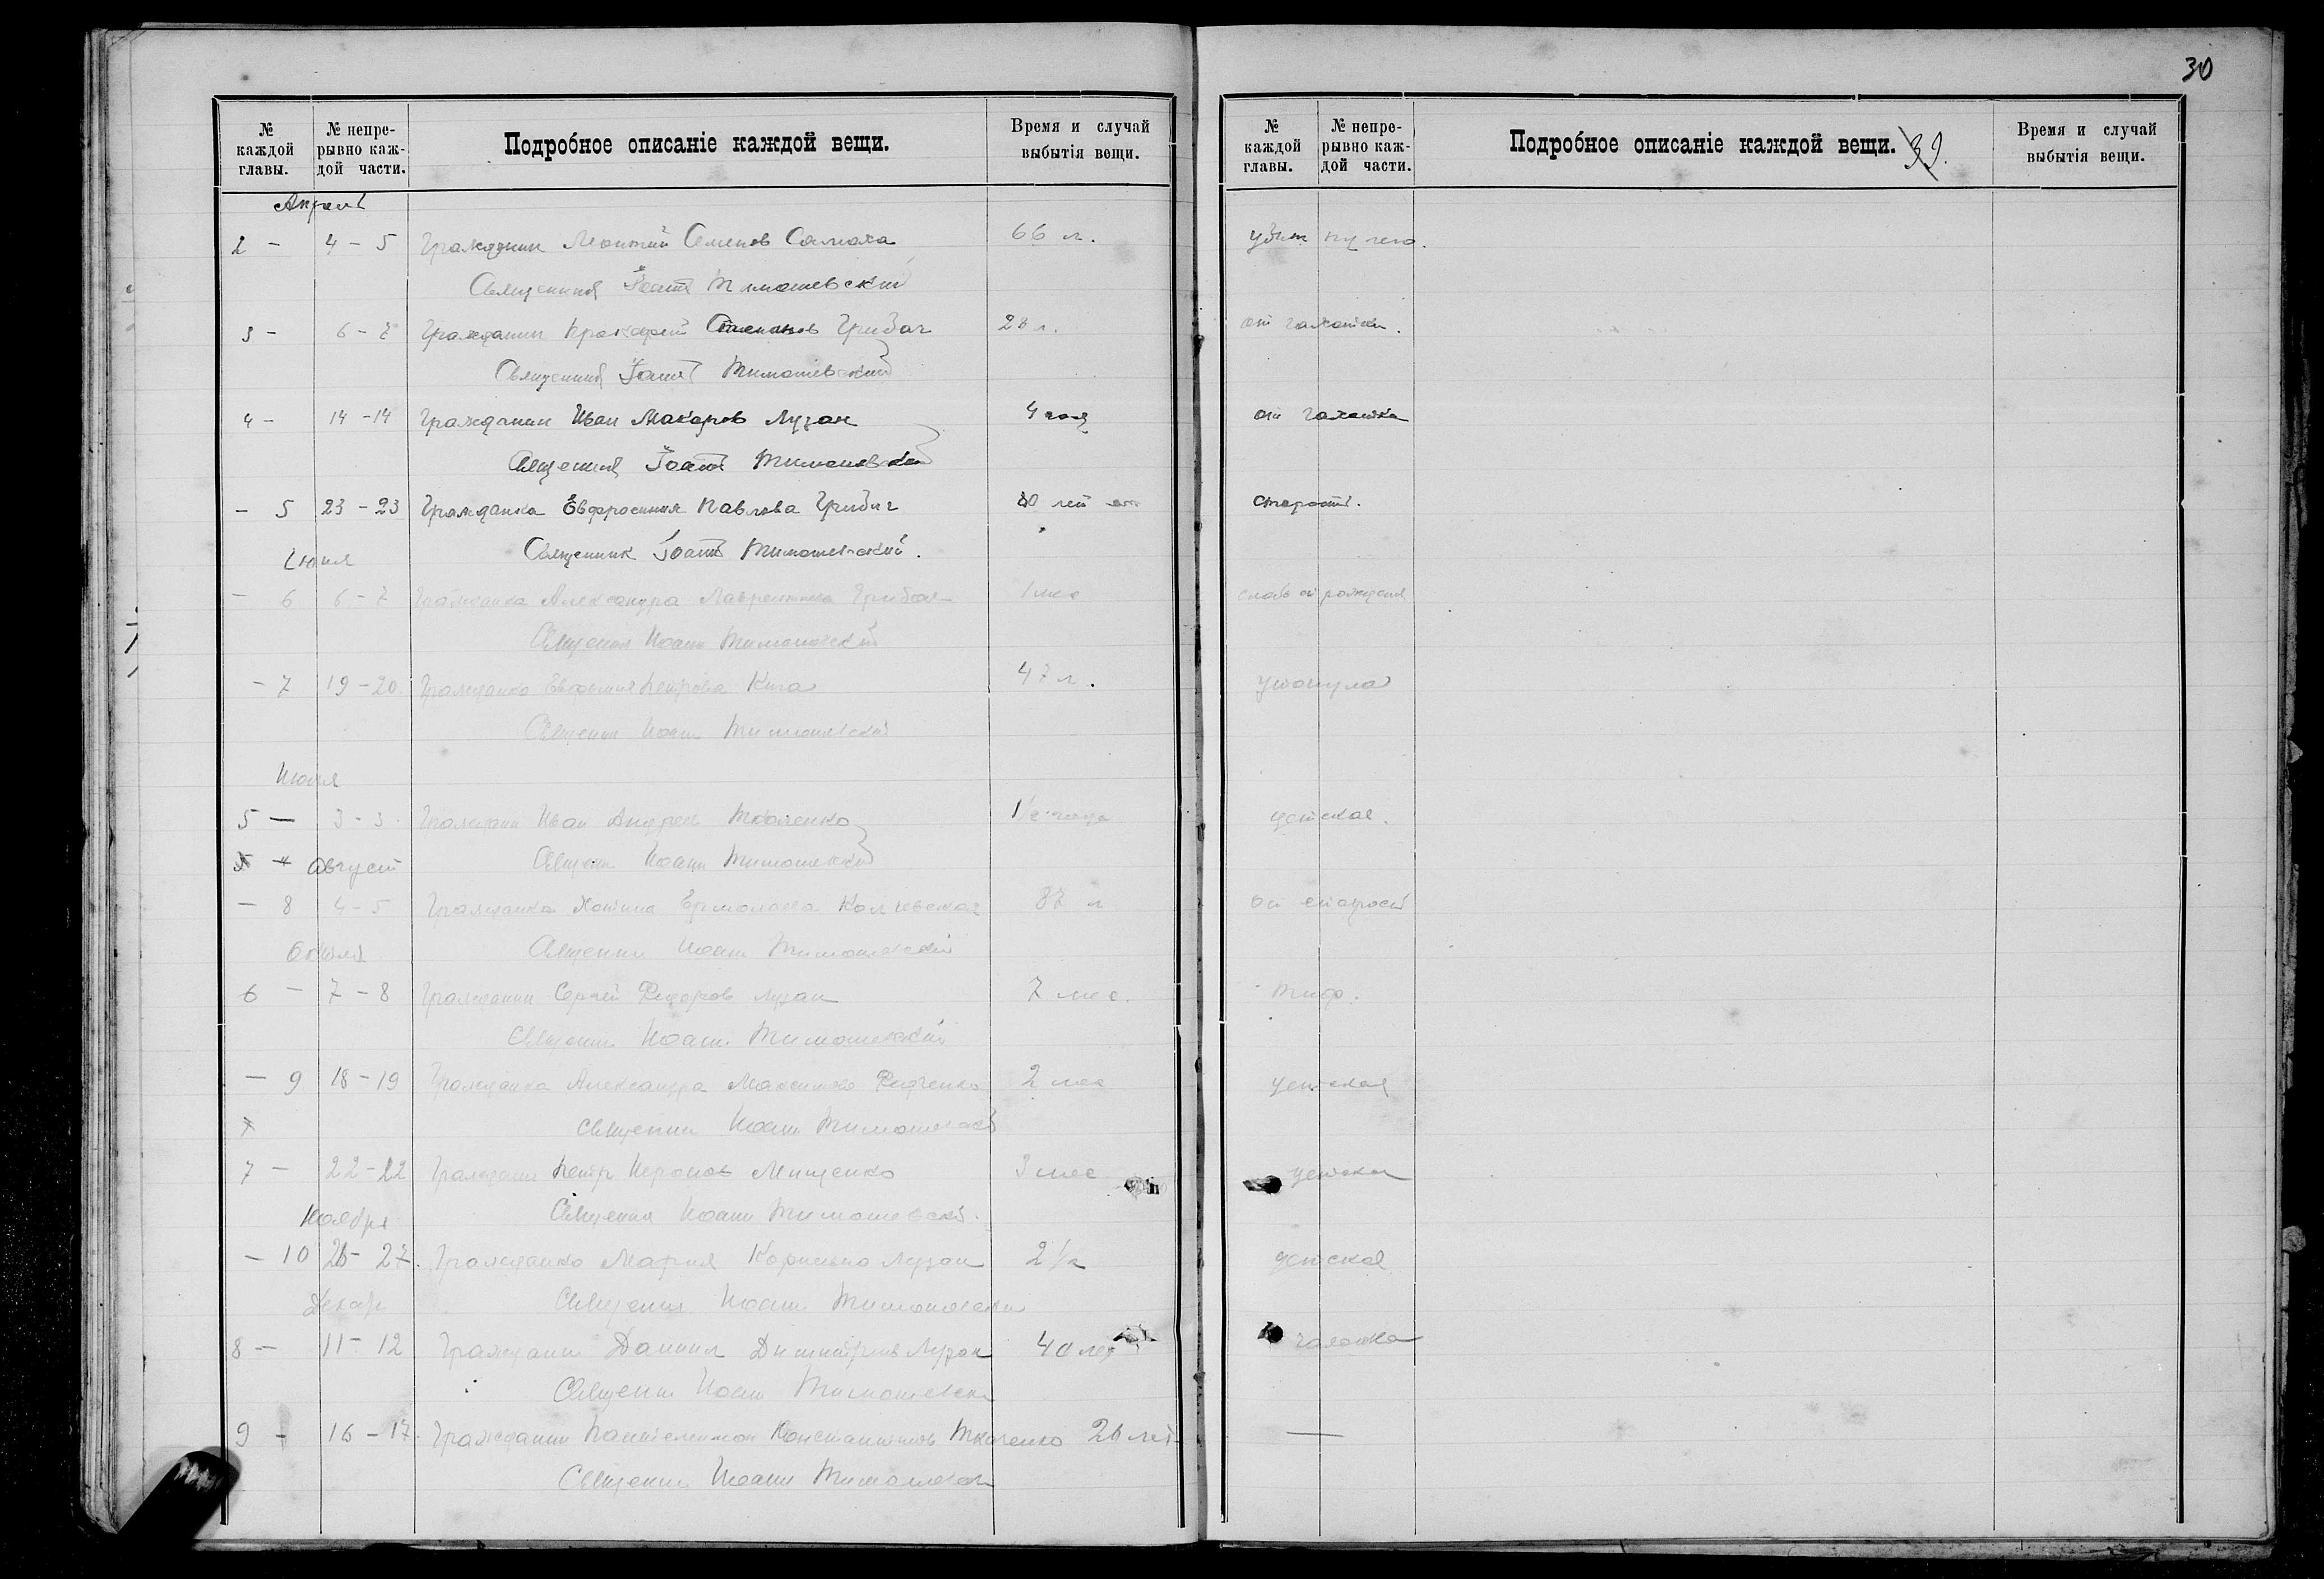 30
№ каждой главы. № непрерывно каждой части. Подробное описаніе каждой вещи. Время и случай выбытія вещи.
№ каждой главы. № непрерывно каждой части. Подробное описаніе каждой вещи. 39. Время и случай выбытія вещи.
Апрель
2 - 4 - 5 Гражданин Леонтий Семенов Самоха 66 л. убит пулею.
Священник Іоанн Тимошевский
3 - 6 - 7 Гражданин Прокофий Степанов Грибач 28 л. от чахотки.
Священник Іоанн Тимошевский
4 - 14 - 14 Гражданин Иван Макаров Лузан 4 года от чахотки
Священник Іоанн Тимошевский
- 5 23 - 23 Гражданка Евфросиния Павлова Грибач 80 лет от старости.
Священник Іоанн Тимошевский.
Июня
- 6 6 - 7 Гражданка Александра Лаврентиева Грибач 1 мес слаб от рождения
Священник Иоанн Тимошевский
- 7 19 - 20 Гражданка Евфимия Петрова 47 л. утонула
Священник Иоанн Тимошевский
Июля
5 - 3 - 3 Гражданин Иван Андреев Ткаченко 1 1/2 года детская.
Священник Иоанн Тимошевский
Август
- 8 4 - 5 Гражданка Ермолаева 87 л от старости
Священник Иоанн Тимошевский
Октября
6 - 7 - 8 Гражданин Сергей Федоров Лузан 7 мес. Тиф.
Священник Иоанн Тимошевский
- 9 18 - 19 Гражданка Александра Максимова Федченко 2 мес детская
7 Священник Иоанн Тимошевский
7 - 22 - 22 Гражданин Петр Миронов Мищенко 3 мес детская
Священник Иоанн Тимошевский.
Ноября
- 10 26 - 27. Гражданка Мария Корнильева Лузан 2 1/2 детская
Декабр Священник Иоанн Тимошевский
8 - 11 - 12 Гражданин Даниил Димитриев Лузан 40 лет чахотка
Священник Иоанн Тимошевский
9 - 16 - 17. Гражданин Пантелеимон Константинов Ткаченко 26 лет —
Священник Иоанн Тимошевский